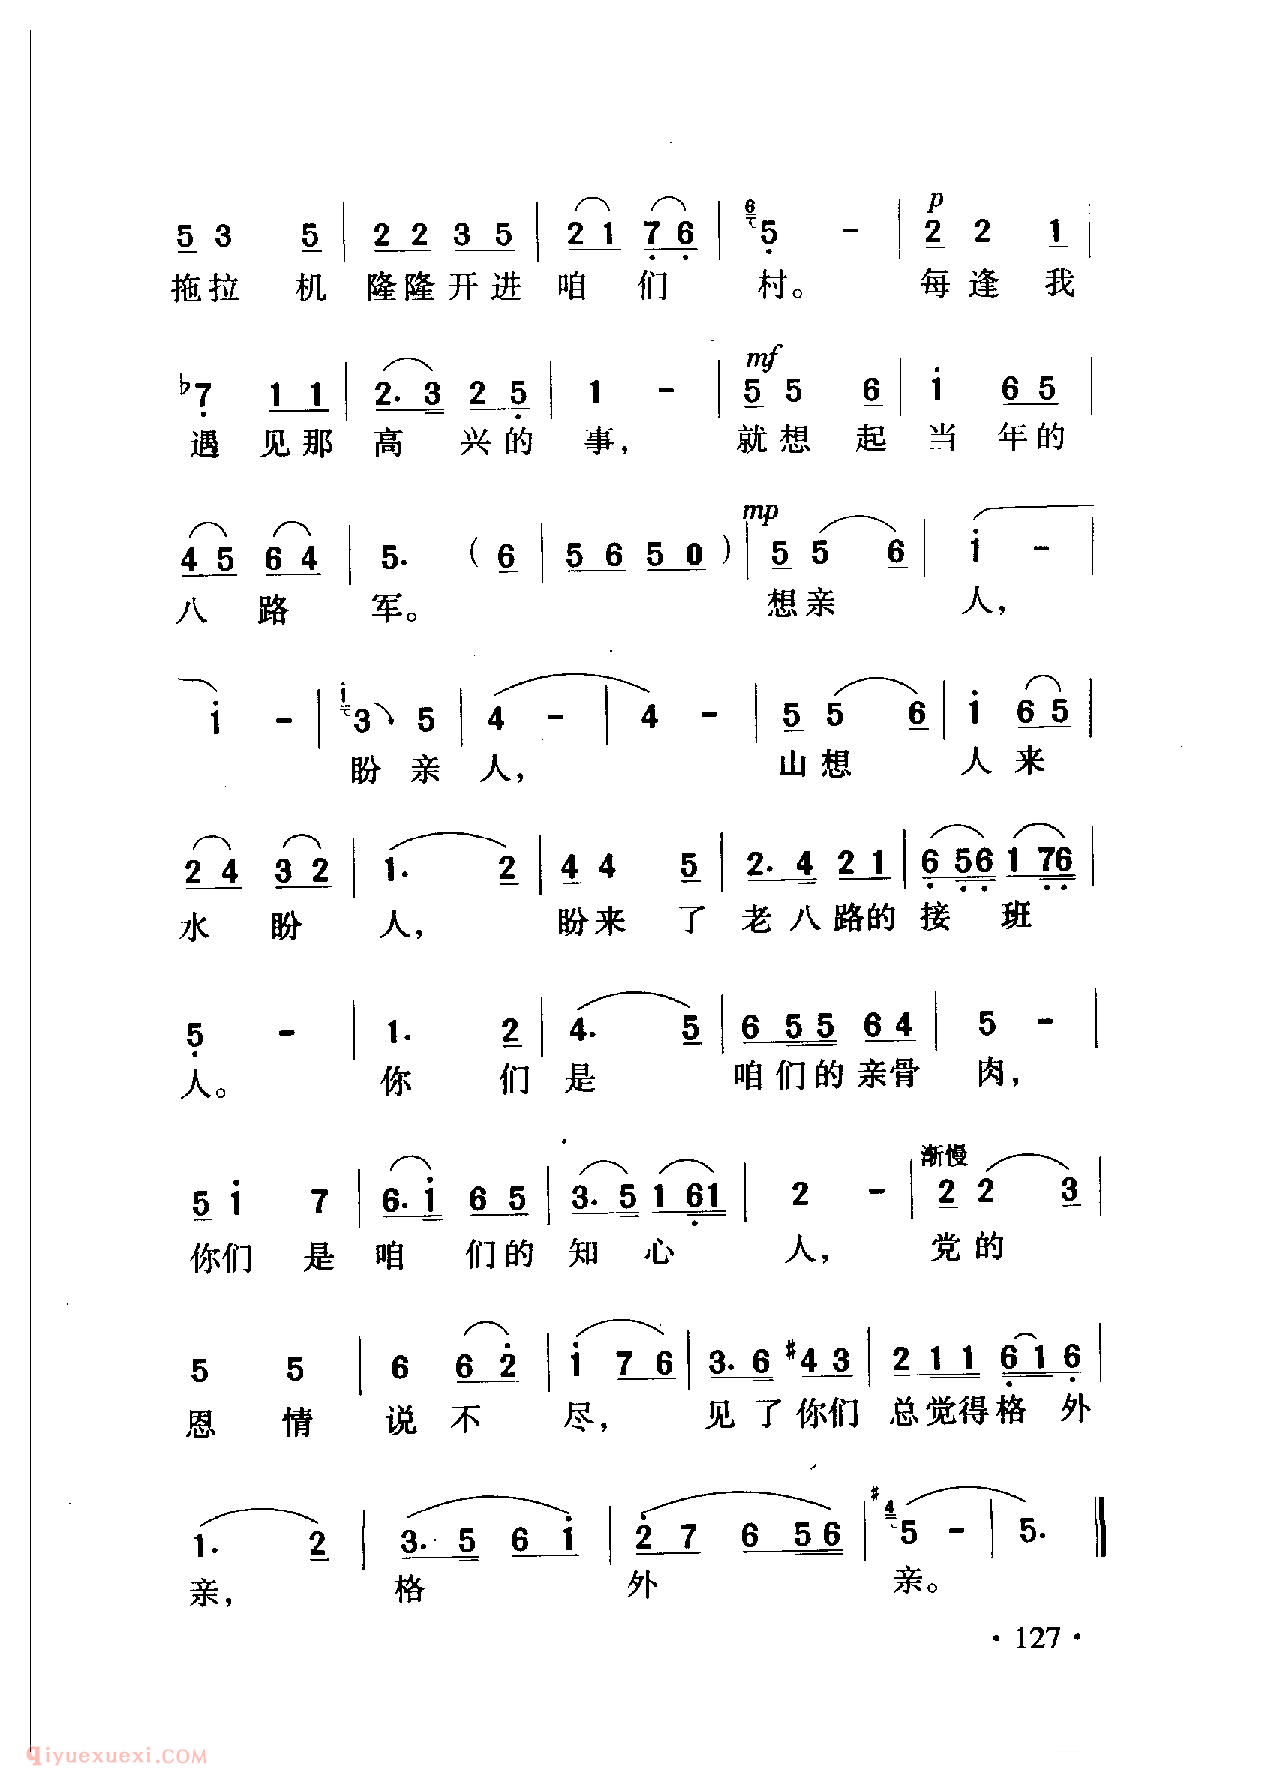 5 3 5 | 2 2 3 5 | 2 1 7 6 | 6 5 - | p 2 2 1 |
拖拉 机 隆隆开进 咱 们 村。 每逢 我
♭7 1 1 | 2. 3 2 5 | 1 - | mf 5 5 6 | i 6 5 |
遇 见那 高 兴的 事, 就想 起 当 年的
4 5 6 4 | 5. ( 6 | 5 6 5 0 ) | mp 5 5 6 | i - |
八 路 军。 想亲 人,
i - | i 3 5 | 4 - | 4 - | 5 5 6 | i 6 5 |
盼 亲 人, 山想 人 来
2 4 3 2 | 1. 2 | 4 4 5 | 2. 4 2 1 | 6 56 1 76 |
水 盼 人, 盼来 了 老八路的 接 班
5 - | 1. 2 | 4. 5 | 6 5 5 6 4 | 5 - |
人。 你 们 是 咱们的亲骨 肉,
渐慢
5 i 7 | 6. i 6 5 | 3. 5 1 61 | 2 - | 2 2 3 |
你们 是 咱 们的 知 心 人, 党的
5 5 | 6 6 2 | i 7 6 | 3. 6 #4 3 | 2 1 1 6 1 6 |
恩 情 说 不 尽, 见了你们 总觉得格 外
1. 2 | 3. 5 6 i | 2 7 6 56 | #4 5 - | 5. ‖
亲, 格 外 亲。
· 127 ·
qiyuexuexi.COM